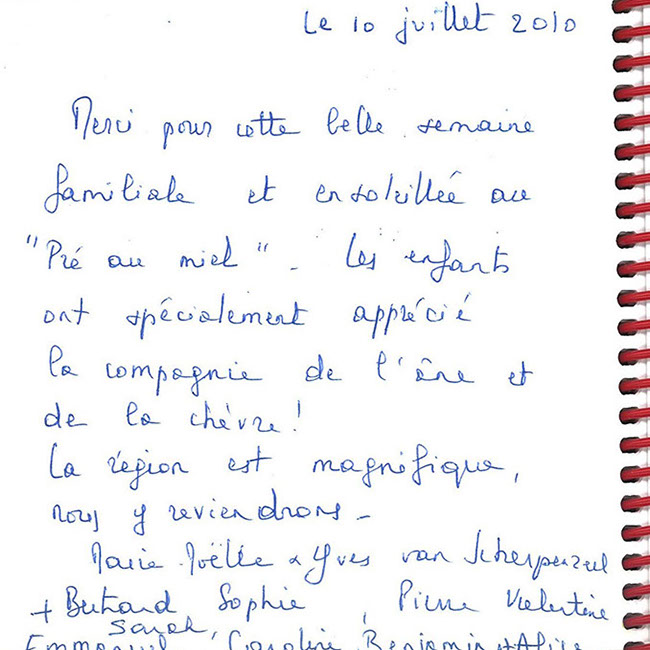 Le 10 juillet 2010
Merci pour cette belle semaine
familiale et ensoleillée au
"Pré au miel" - Les enfants
ont spécialement apprécié
la compagnie de l'âne et
de la chèvre !
La région est magnifique,
nous y reviendrons -
Marie Joëlle & Yves van Scherpenzeel
+ Bertrand Sophie, Pierre Valentine
Sarah,
Emmanuel Caroline Benjamin + Alice